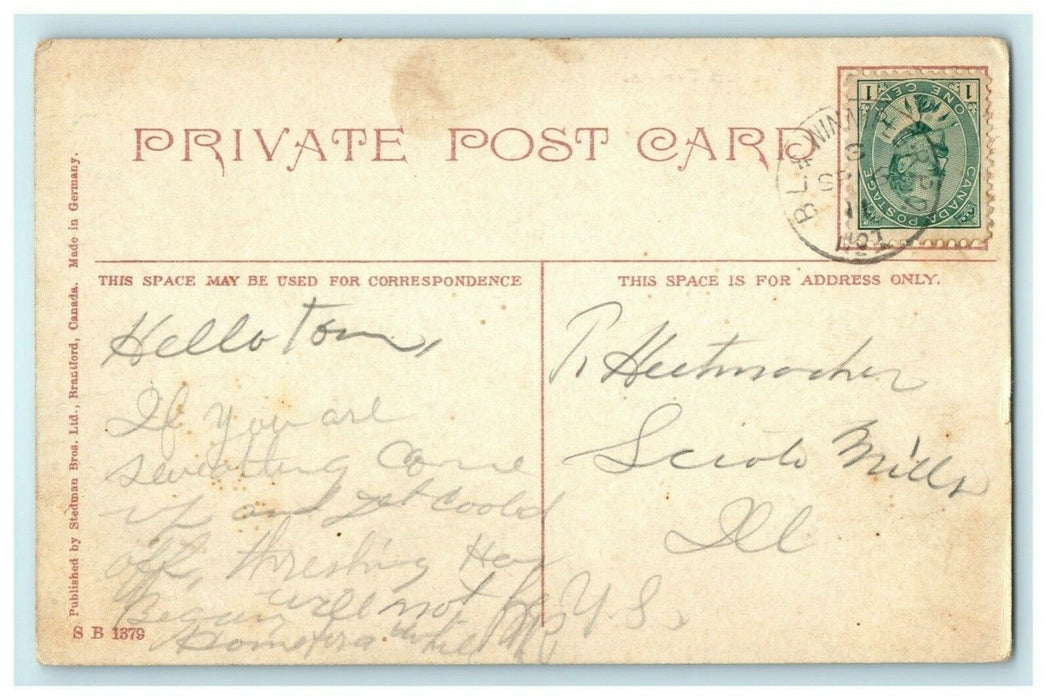 PRIVATE POST CARD
1 ONE CENT 1
CANADA POSTAGE
THIS SPACE MAY BE USED FOR CORRESPONDENCE
Hello Tom,
If you are
sweating Come
up and get coold
off, threshing Has
Began will not be
Home for a while
THIS SPACE IS FOR ADDRESS ONLY.
Heitmacher
Scioto Mills
Ill
U. S.
Published by Stedman Bros. Ltd., Brantford, Canada. Made in Germany.
S B 1379